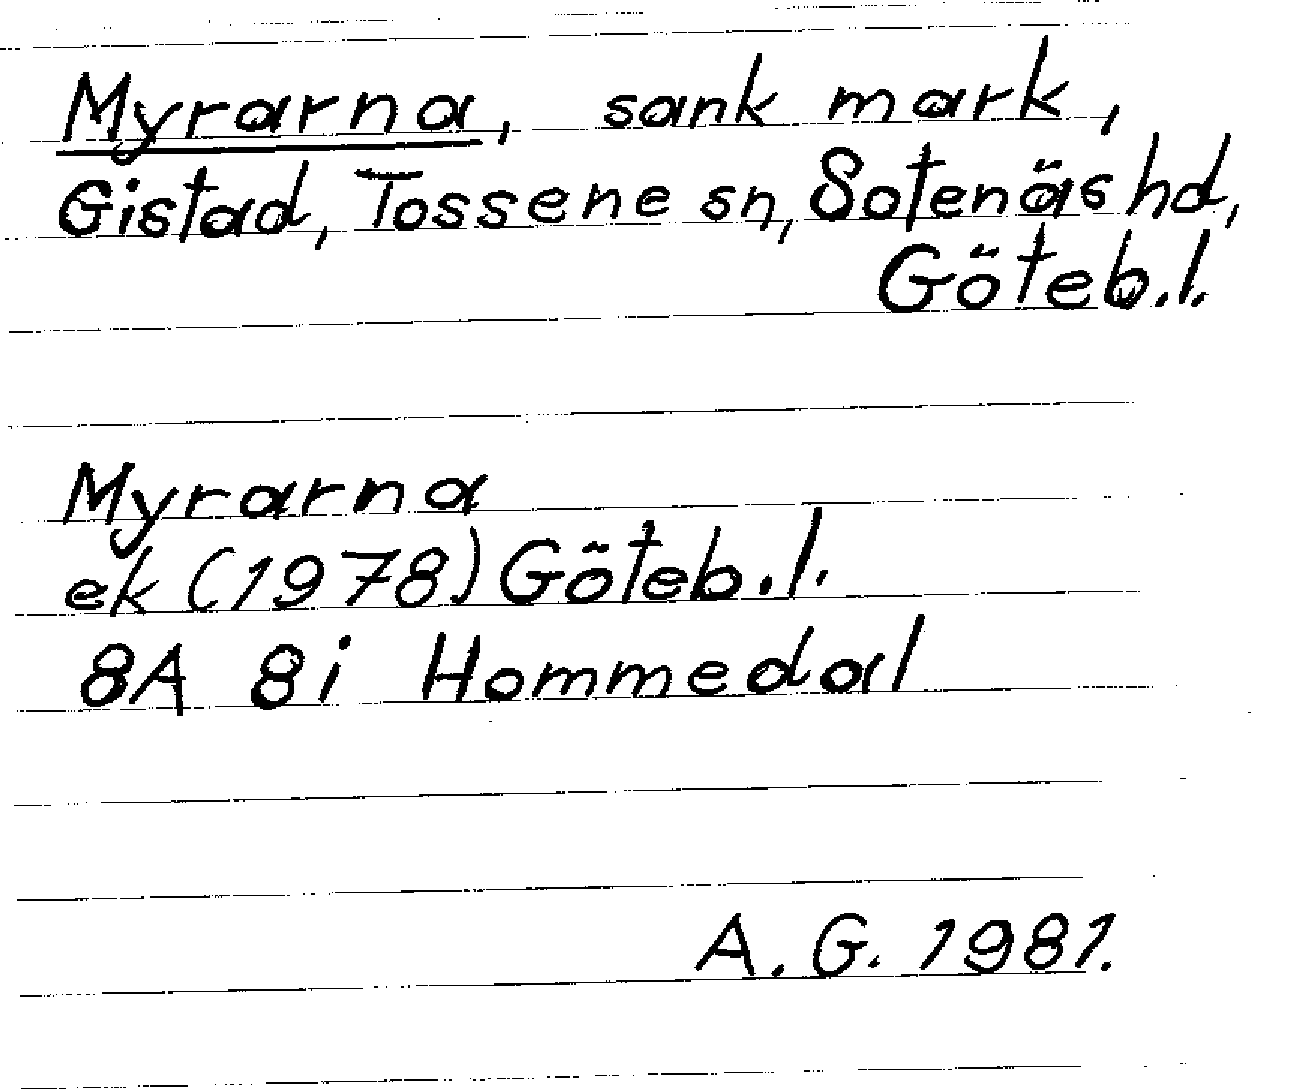 Myrarna, sank mark,
Gistad, Tossene sn, Sotenäs hd,
Göteb.l.
Myrarna
ek (1978) Göteb.l.
8A 8i Hommedal
A. G. 1981.